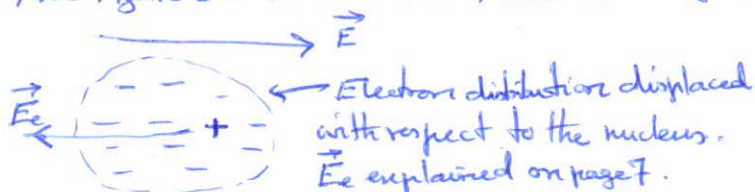 E
Electron distribution displaced
Ee
with respect to the nucleus.
Ee explained on page 7.